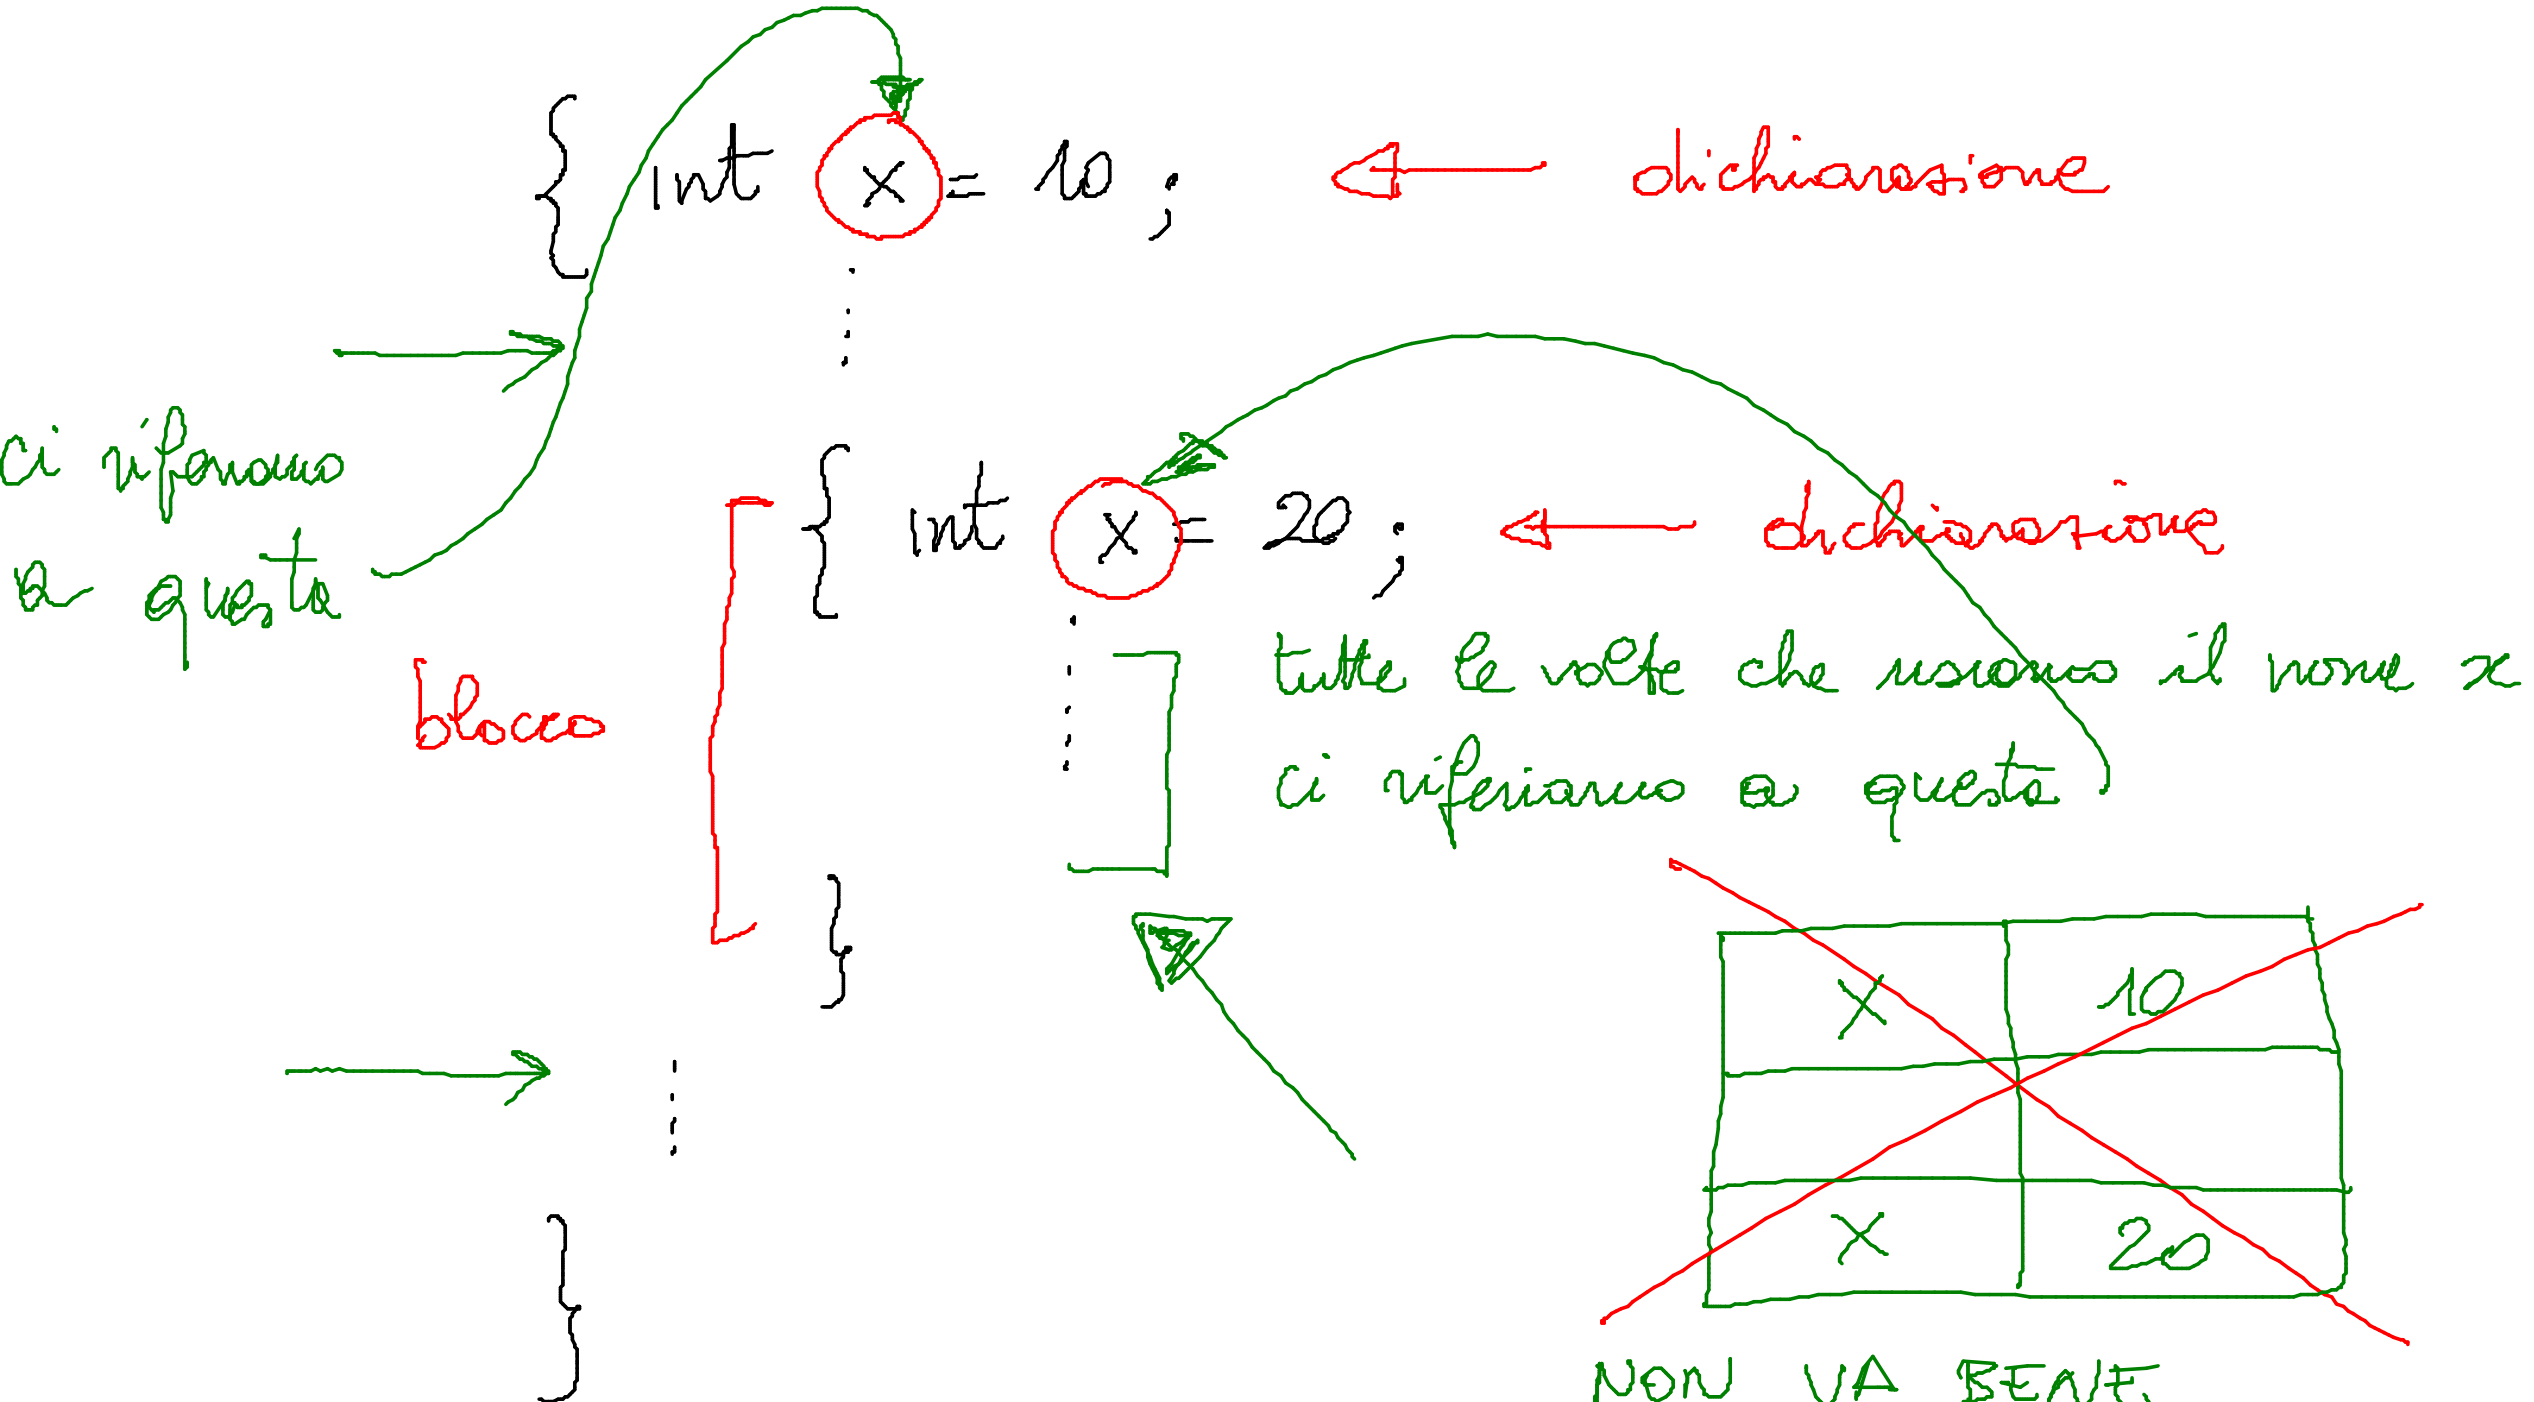 { int x = 10 ; dichiarazione
ci riferiamo
a questa
{ int x = 20 ; dichiarazione
blocco
tutte le volte che usiamo il nome x
ci riferiamo a questa
}
x 10
x 20
}
NON VA BENE.